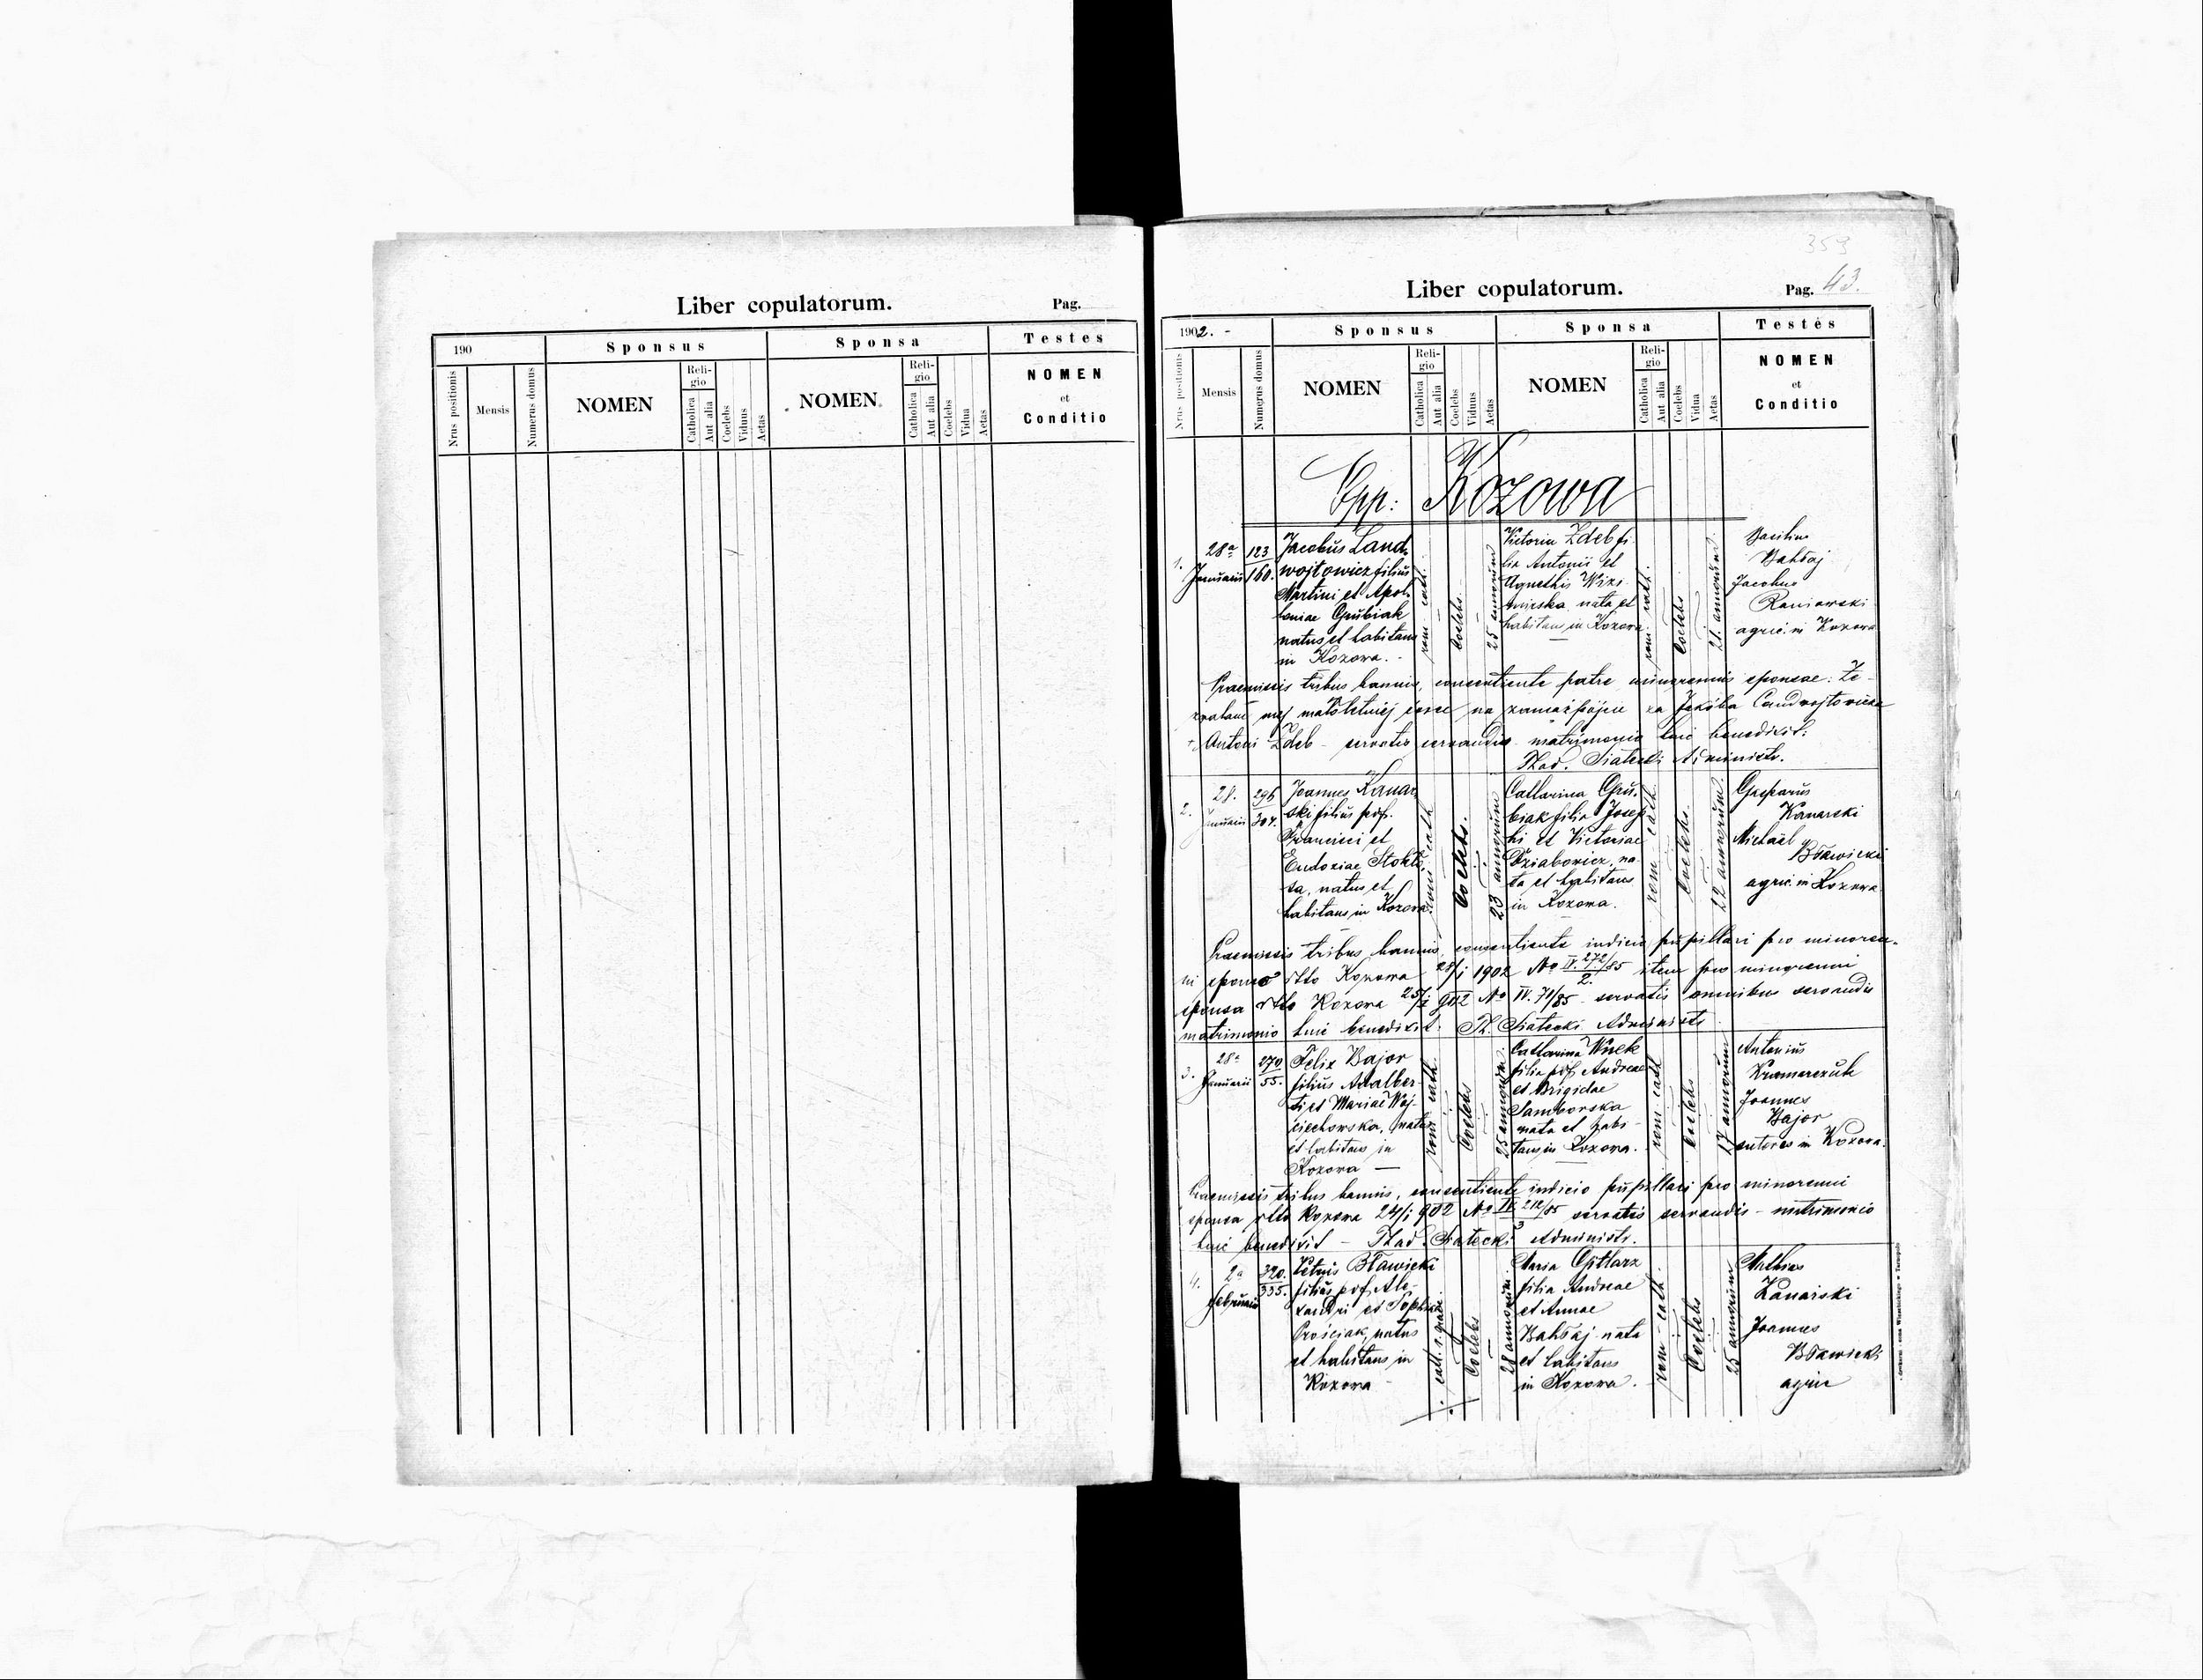 Liber copulatorum.
Pag.
190
Sponsus
Sponsa
Testes
Nrus positionis
Mensis
Numerus domus
NOMEN
Reli-
gio
Catholica
Aut alia
Coelebs
Viduus
Aetas
NOMEN.
Reli-
gio
Catholica
Aut alia
Coelebs
Vidua
Aetas
NOMEN
et
Conditio
359
Liber copulatorum.
Pag. 43.
1902. -
Sponsus
Sponsa
Testes
Nrus positionis
Mensis
Numerus domus
NOMEN
Reli-
gio
Catholica
Aut alia
Coelebs
Viduus
Aetas
NOMEN
Reli-
gio
Catholica
Aut alia
Coelebs
Vidua
Aetas
NOMEN
et
Conditio
Opp: Kozowa
1.
28a
Januarii
123
160.
Jacobus Land-
wojtowicz filius
Martini et Apol-
loniae Grubiak
natus et habitans
in Kozowa. -
rom. cath.
Coelebs
25 annorum
Victoria Zdeb fi-
lia Antonii et
Agnethis
nata et
habitans in Kozowa
rom. cath.
Coelebs
21. annorum
Basilius
Bahłaj
Jacobus
agric. in Kozowa
Praemissis tribus bannis, consentiente patre minorennis sponsae: Ze-
zwalam mej małoletniej córce na zamążpójcie za Jakóba Landwojtowicza
+ Antoni Zdeb - servatis servandis matrimonio huic benedixit.
Thad. Siatecki Administr.
2.
28.
Januarii
296
304.
Joannes Kanar-
ski filius pdf.
Francisci et
Eudoxiae Stokło-
sa, natus et
habitans in Kozowa.
rom. cath.
Coelebs.
23 annorum
Catharina Gru-
biak filia Josep-
hi et Victoriae
Dziabowicz, na-
ta et habitans
in Kozowa.
rom. cath.
Coelebs.
22 annorum
Gasparus
Kanarski
Michael
Bławicki
agric. in Kozowa
Praemissis tribus bannis, consentiente iudicio pupillari pro minoren-
ni sponso dtto Kozowa 28/i 1902 No IV. 272/85 item pro minorenni
2.
sponsa dtto Kozowa 25/i 902 No IV. 71/85 - servatis omnibus servandis
matrimonio huic benedixit. Th. Siatecki Administr
3.
28a
Januarii
270
55.
Felix Bajor
filius Adalber-
ti et Mariae Woj-
ciechowska, natus
et habitans in
Kozowa —
rom. cath.
Coelebs
25 annorum
Catharina Wnek
filia pdf. Andreae
et Brigidae
Samborska
nata et habi-
tans in Kozowa.
rom cath
Coelebs
17 annorum
Antonius
Kramarczuk
Joannes
Bajor
sutores in Kozowa.
Praemissis tribus bannis, consentiente iudicio pupillari pro minorenni
sponsa dtto Kozowa 24/i 902 No IV. 212/85 servatis servandis - matrimonio
3
huic benedixit - Thad. Siatecki Administr.
4.
2a
Februarii
320.
335.
Petrus Bławicki
filius pdf. Ale-
xandri et Sophiae
Prościak, natus
et habitans in
Kozowa
cath. r. graec.
Coelebs
28 annorum.
Maria Gitlarz
filia Andreae
et Annae
Bahłaj nata
et habitans
in Kozowa.
rom. cath.
Coelebs
25 annorum
Mathias
Kanarski
Joannes
Bławicki
agric